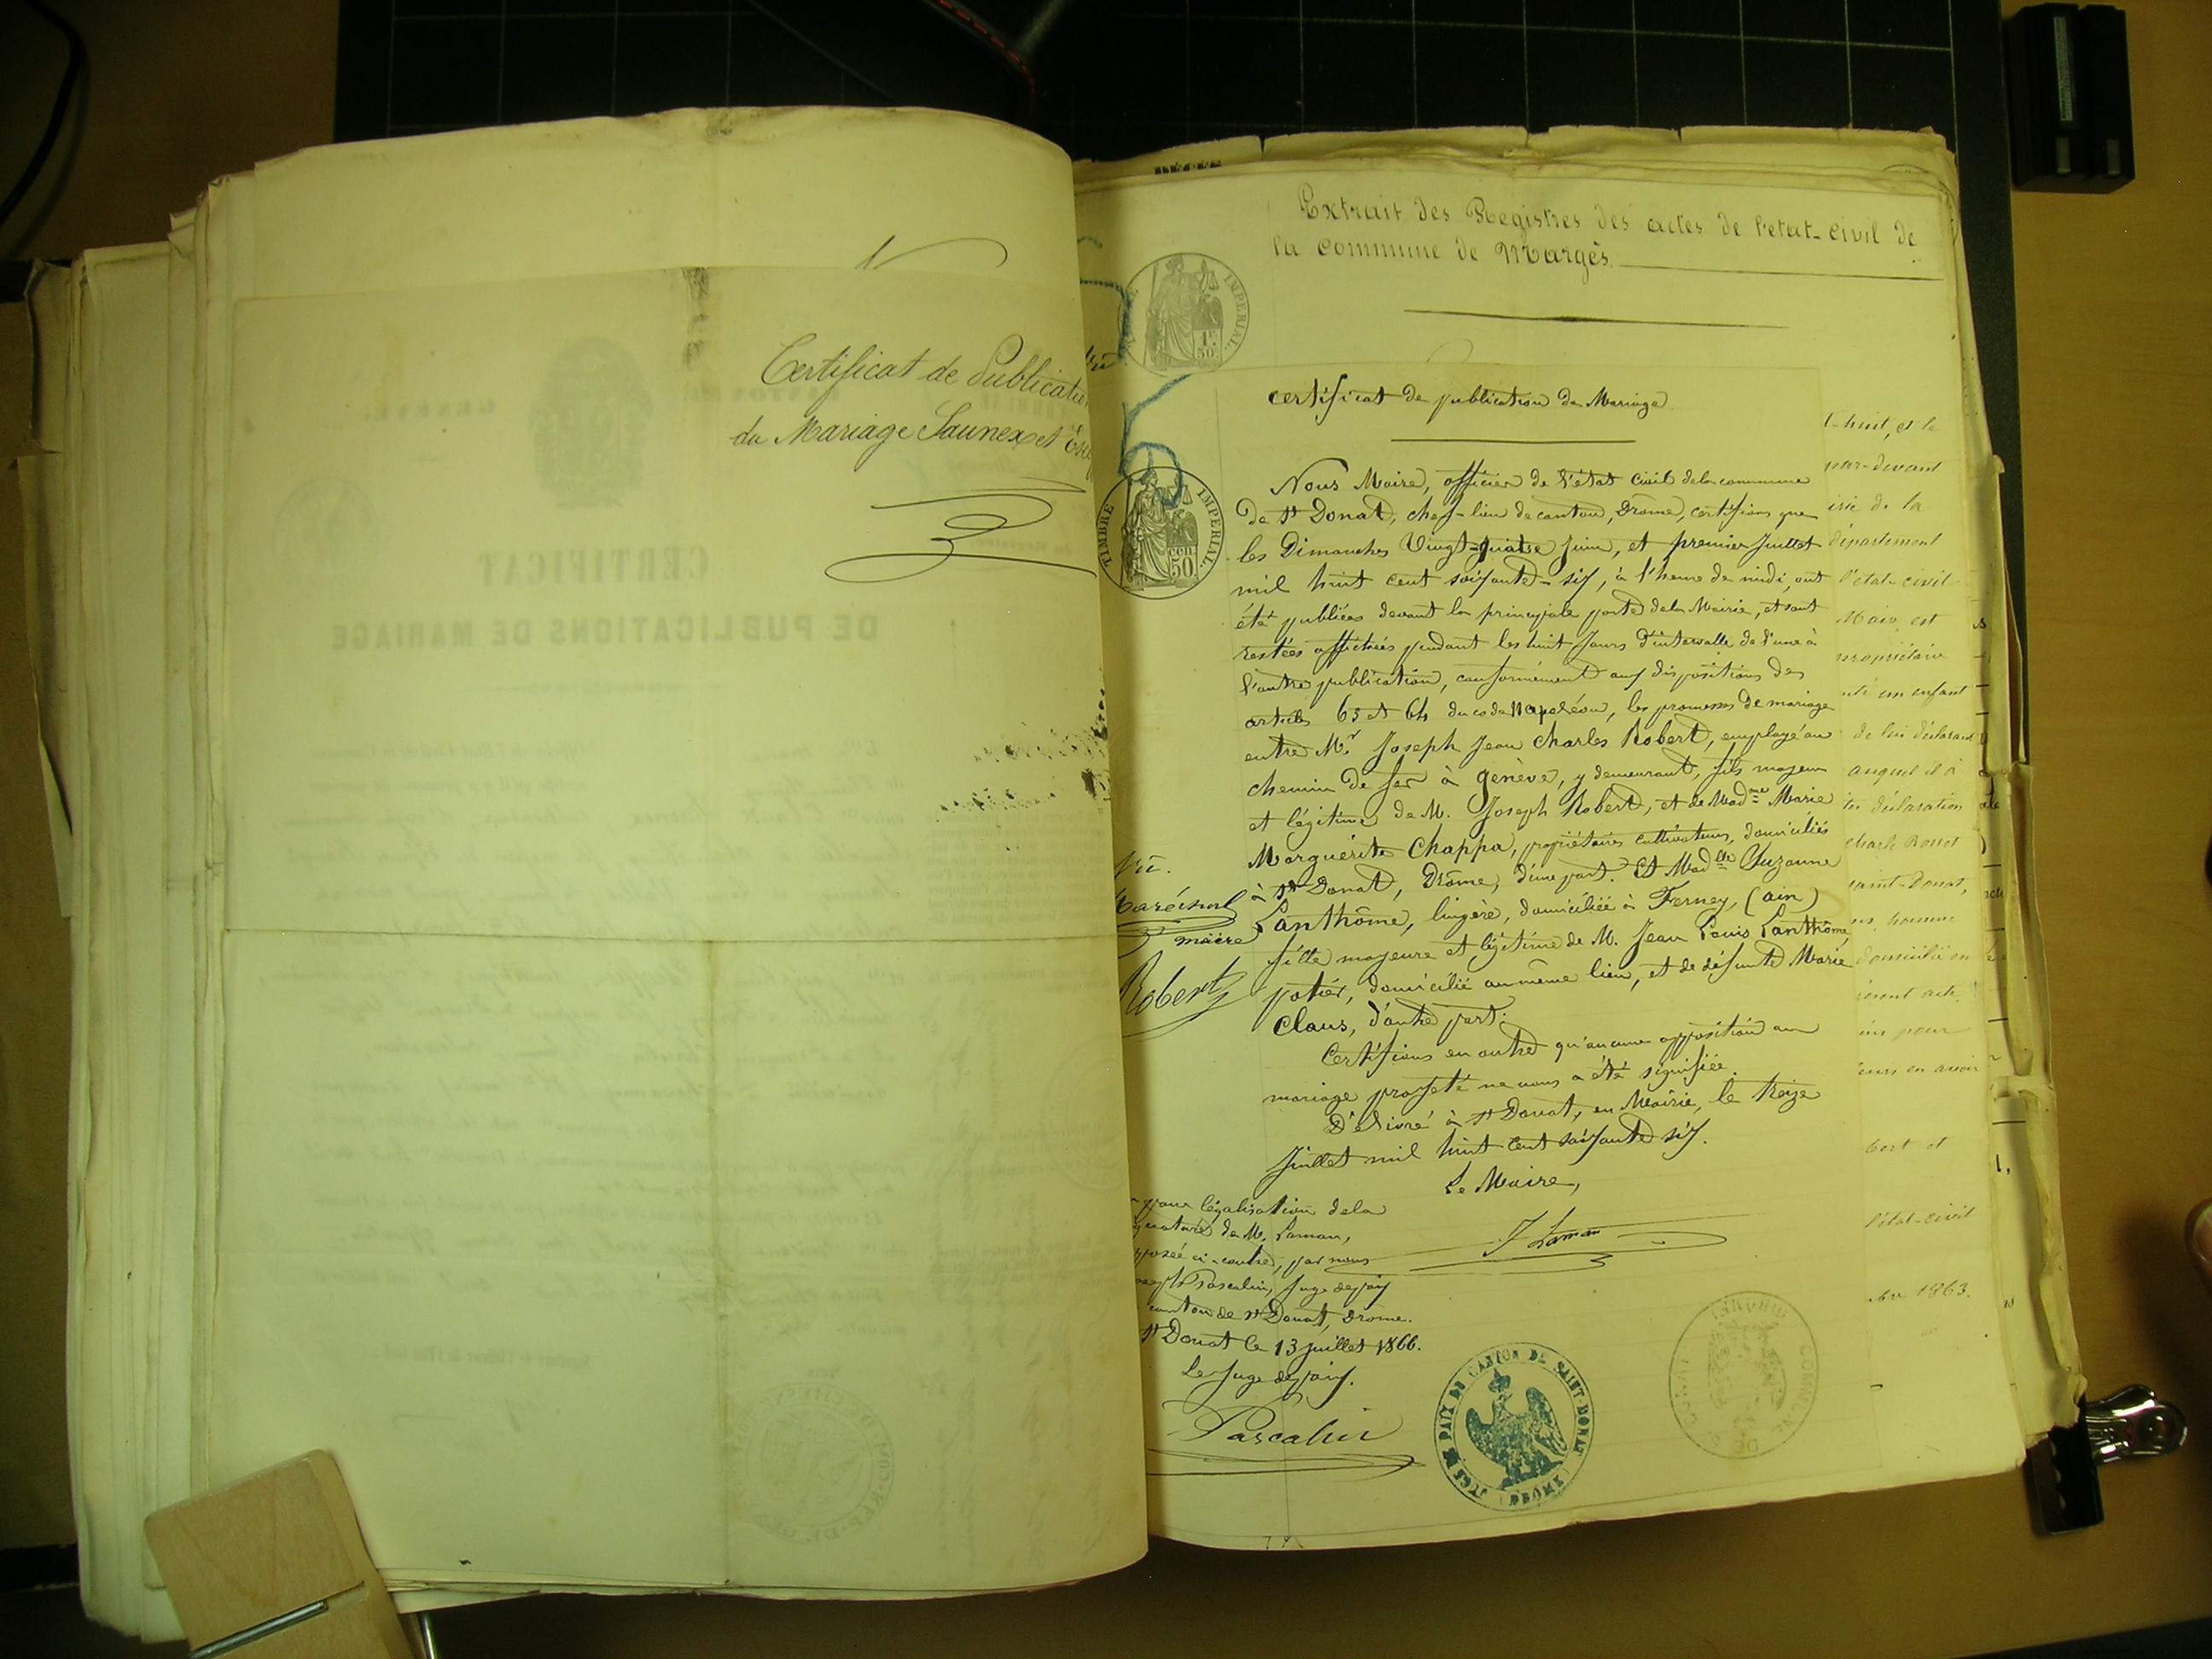 Certificat de Publication
du Mariage Saunex et
CERTIFICAT
DE PUBLICATIONS DE MARIAGE
Extrait des Registres des actes de l'etat-civil de
la Commune de Margès
TIMBRE IMPERIAL
1F 50
TIMBRE IMPERIAL
cen 50
certificat de publication de Mariage
Nous Maire, officier de l'état civil de la commune
de St Donat, chef-lieu de canton, Drôme, certifions que
les Dimanches Vingt-quatre Juin, et premier Juillet
mil huit cent soixante-six, à l'heure de midi, ont
été publiées devant la principale porte de la Mairie, et sont
restées affichées pendant les huit jours d'intervalle de l'une à
l'autre publication, conformément aux dispositions des
articles 63 et 64 du code Napoléon, les promesses de mariage
entre Mr Joseph Jean Charles Robert, employé au
chemin de fer à genève, y demeurant, fils majeur
et légitime de M. Joseph Robert, et de Madme Marie
Marguerite Chappa, propriétaires cultivateurs, domiciliés
à St Donat, Drôme, d'une part. Et Madlle Suzanne
Lanthôme, lingère, domiciliée à Ferney, (ain)
fille majeure et légitime de M. Jean Louis Lanthôme,
potier, domicilié au même lieu, et de défunte Marie
Claus, d'autre part.
Certifions en outre qu'aucune opposition au
mariage projeté ne nous a été signifiée.
Délivré à St Donat, en Mairie, le treize
Juillet mil huit cent soixante six.
Le Maire,
J Laman
pour légalisation de la
de M. Laman,
ci-contre, par nous
Pascalin, Juge de paix
canton de St Donat, Drôme.
St Donat le 13 juillet 1866.
Le Juge de paix.
Pascalin
JUGE DE PAIX DU CANTON DE SAINT-DONAT (DROME)
maire
Robert
t-huit, et le
par-devant
irie de la
département
l'etat-civil
Maire est
propriétaire
nté un enfant
de lui déclarant
auquel il a
déclaration
Saint-Donat,
domicilié en
pour
bert et
l'état-civil
1863.